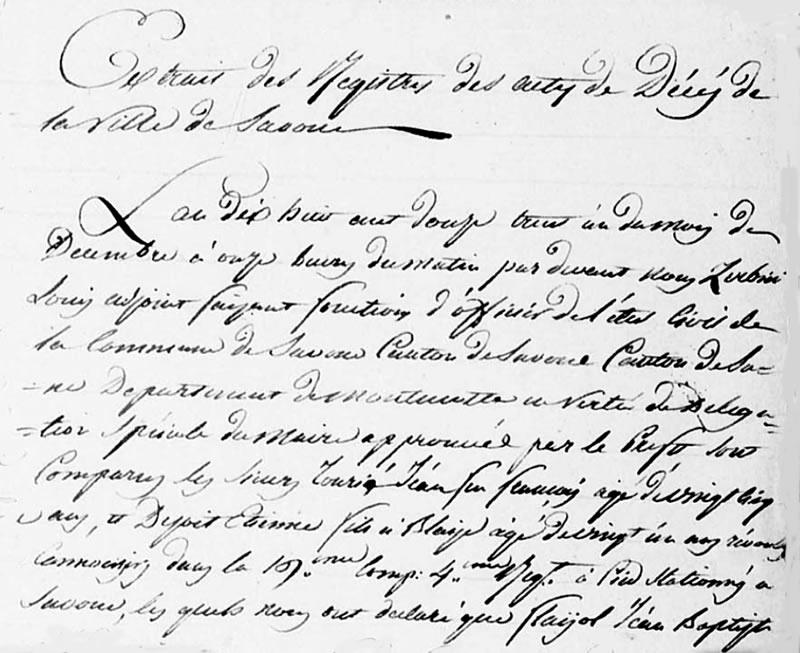 Extrait des Registres des actes de Décès de
la Ville de Savone
L'an dix huit cent douze trent'un du mois de
Décembre à onze heures du matin par devant nous Zerbini
Louis adjoint faisant fonctions d'officier de l'état Civil de
la Commune de Savone Canton de Savone Canton de Sa=
=ne Département de Montenotte en Vertu de Deléga=
=tion spéciale du Maire approuvée par le Préft sont
Comparus les sieurs Jean feu françois agé de vingt cinq
ans, et Etienne fils à Blaise agé de vingt un ans
dans la 19.me Comp: 4.me Regt. à Pied Stationné à
Savone, les quels nous ont declaré que flayol Jean Baptiste